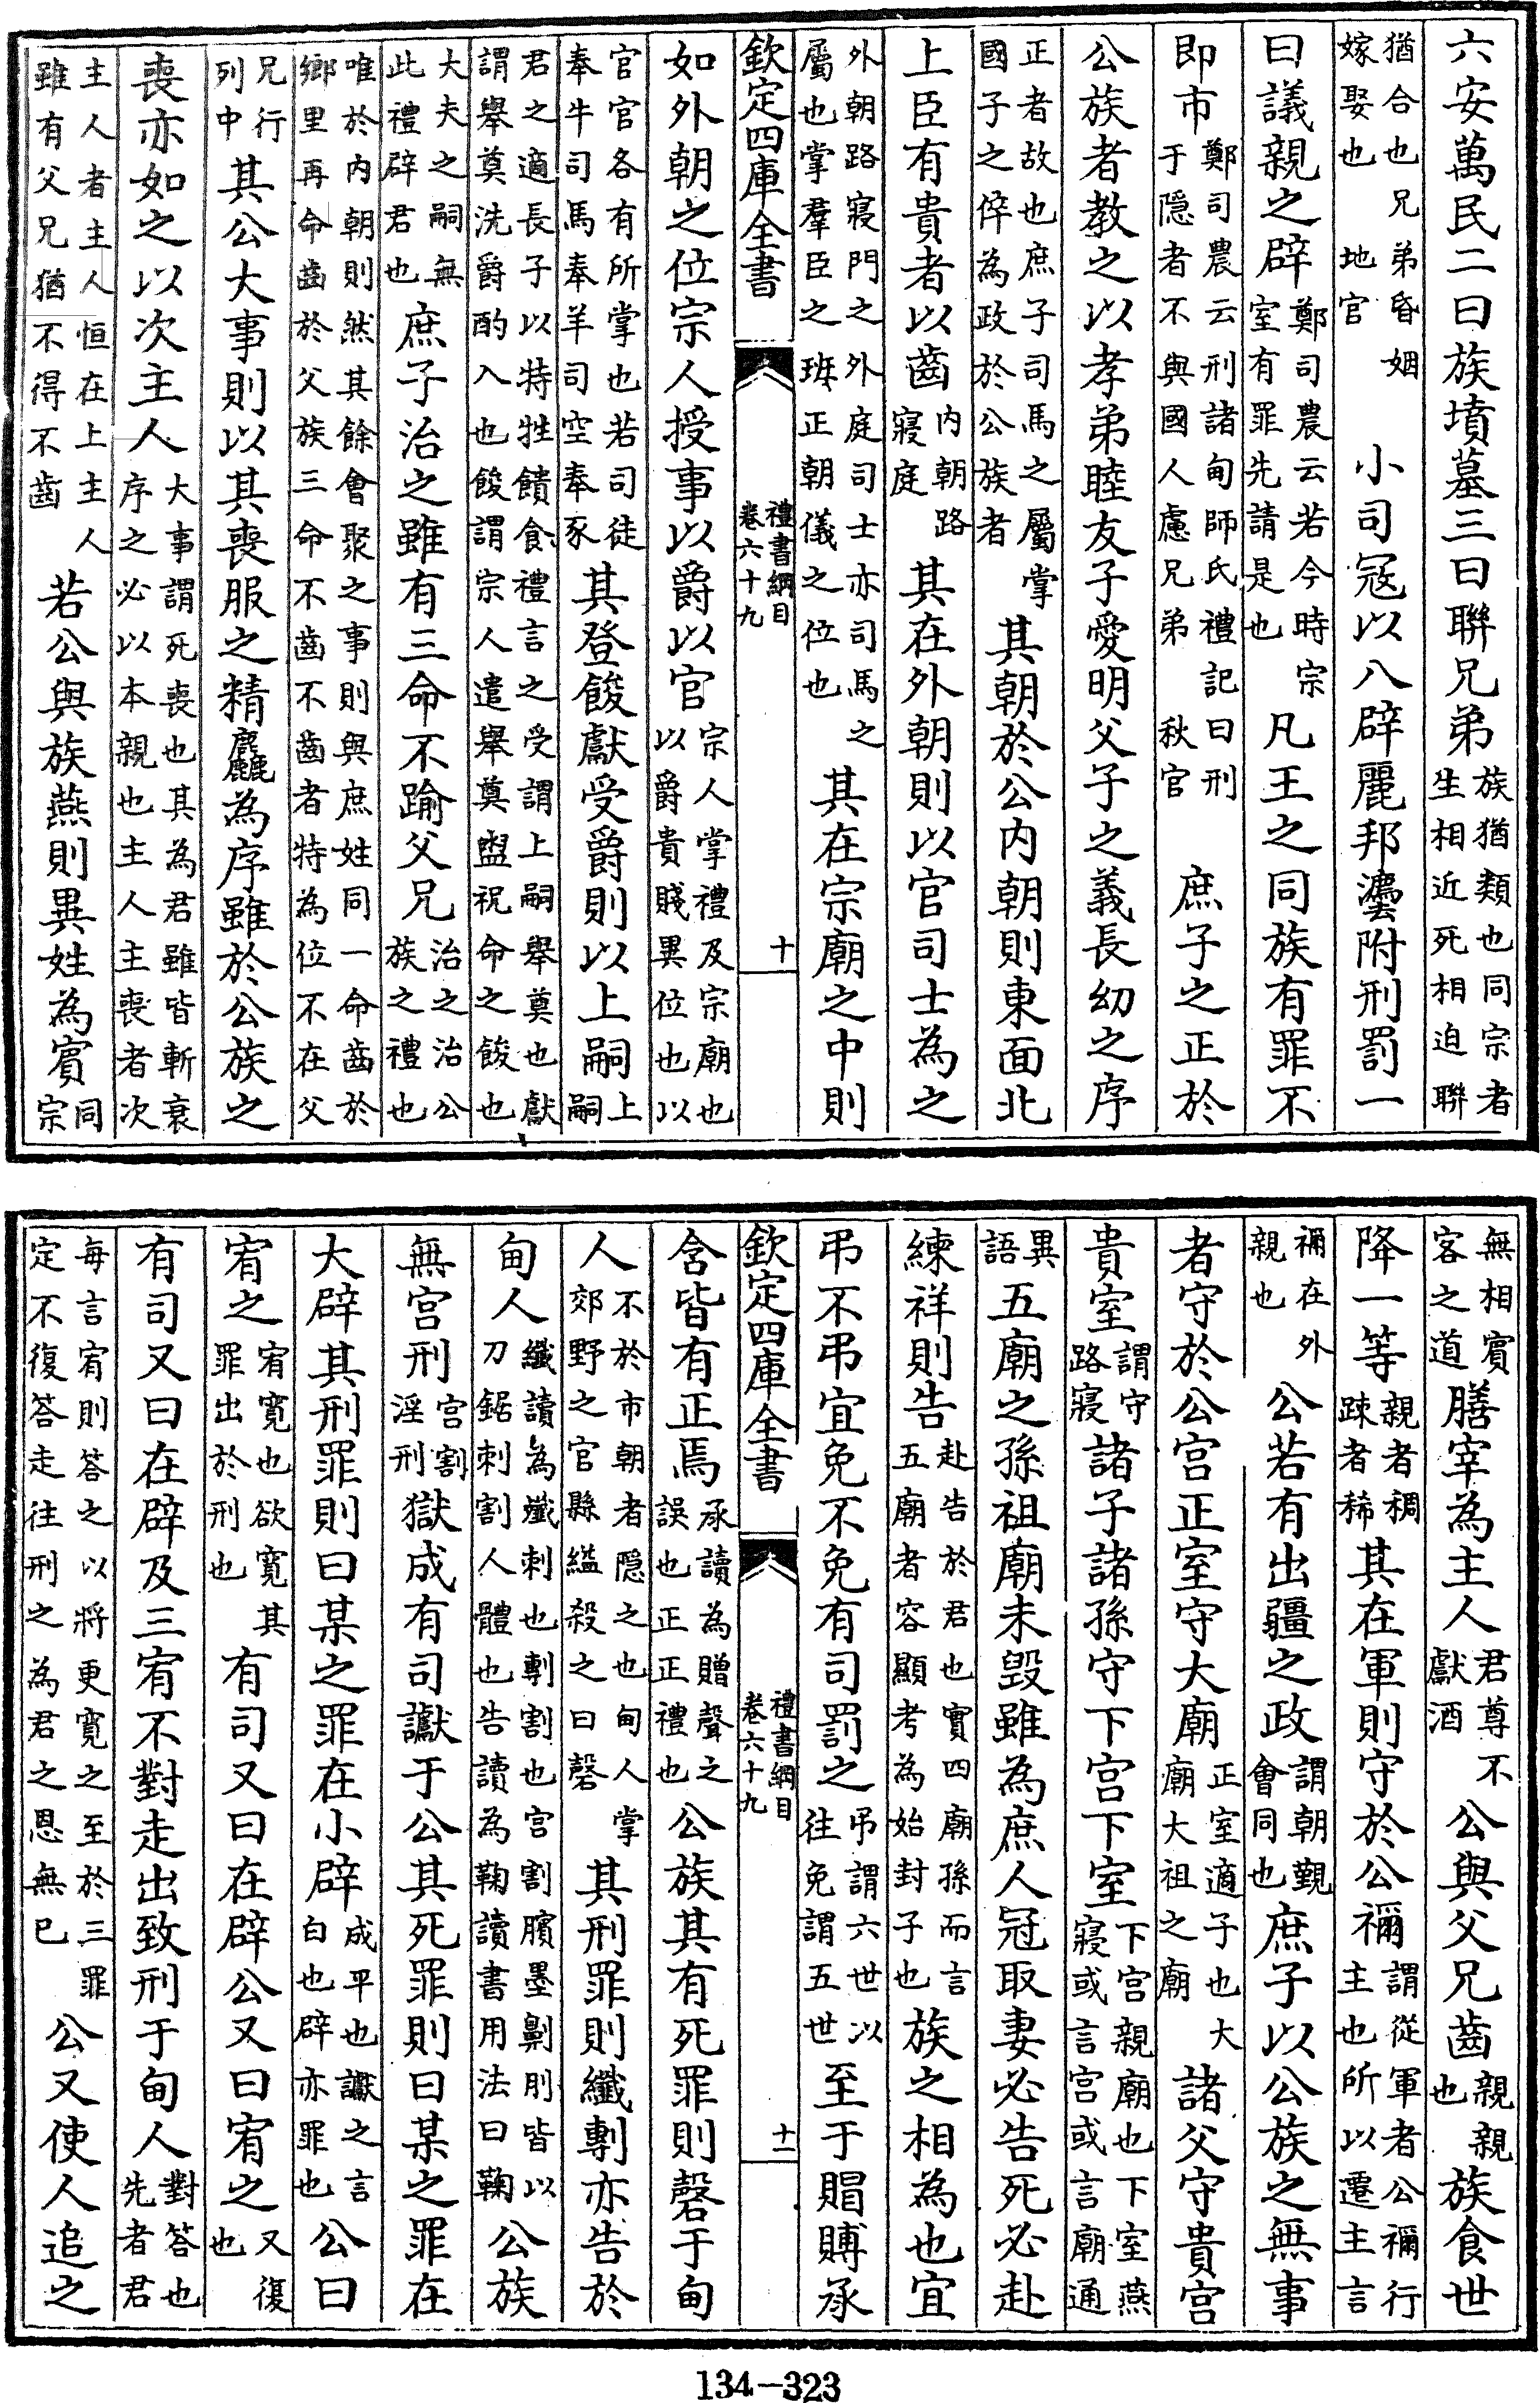 六安萬民二曰族墳墓三曰聯兄弟族猶類也同宗者生相近死相迫聯
猶合也兄弟昏姻嫁娶也 地官 小司寇以八辟麗邦灋附刑罰一
曰議親之辟鄭司農云若今時宗室有罪先請是也凡王之同族有罪不
即市鄭司農云刑諸甸師氏禮記曰刑于隠者不與國人慮兄弟 秋官 庶子之正於
公族者教之以孝弟睦友子愛明父子之義長幼之序
正者故也庶子司馬之屬掌國子之倅為政於公族者其朝於公内朝則東面北
上臣有貴者以齒内朝路寢庭其在外朝則以官司士為之
外朝路寢門之外庭司士亦司馬之屬也掌羣臣之班正朝儀之位也其在宗廟之中則
欽定四庫全書 禮書綱目卷六十九 十
如外朝之位宗人授事以爵以官宗人掌禮及宗廟也以爵貴賤異位也以
官官各有所掌也若司徒奉牛司馬奉羊司空奉豕其登餕獻受爵則以上嗣上嗣
君之適長子以特牲饋食禮言之受謂上嗣舉奠也獻謂舉奠洗爵酌入也餕謂宗人遣舉奠盥祝命之餕也
大夫之嗣無此禮辟君也庶子治之雖有三命不踰父兄治之治公族之禮也
唯於内朝則然其餘會聚之事則與庶姓同一命齒於鄉里再命齒於父族三命不齒不齒者特為位不在父
兄行列中其公大事則以其喪服之精麤為序雖於公族之
喪亦如之以次主人大事謂死喪也其為君雖皆斬衰序之必以本親也主人主喪者次
主人者主人恒在上主人雖有父兄猶不得不齒若公與族燕則異姓為賓同宗
無相賓客之道膳宰為主人君尊不獻酒公與父兄齒親親也族食世
降一等親者稠踈者稀其在軍則守於公禰謂從軍者公禰行主也所以遷主言
禰在外親也公若有出疆之政謂朝覲會同也庶子以公族之無事
者守於公宫正室守大廟正室適子也大廟大祖之廟諸父守貴宫
貴室謂守路寢諸子諸孫守下宫下室下宫親廟也下室燕寢或言宫或言廟通
異語五廟之孫祖廟未毀雖為庶人冠取妻必告死必赴
練祥則告赴告於君也實四廟孫而言五廟者容顯考為始封子也族之相為也宜
弔不弔宜免不免有司罰之弔謂六世以往免謂五世至于賵賻承
欽定四庫全書 禮書綱目卷六十九 十一
含皆有正焉承讀為贈聲之誤也正正禮也公族其有死罪則磬于甸
人不於市朝者隠之也甸人掌郊野之官縣縊殺之曰磬其刑罪則纖剸亦告於
甸人纖讀為殲刺也剸割也宫割臏墨劓刖皆以刀鋸刺割人體也告讀為鞠讀書用法曰鞠公族
無宫刑宫割淫刑獄成有司讞于公其死罪則曰某之罪在
大辟其刑罪則曰某之罪在小辟成平也讞之言白也辟亦罪也公曰
宥之宥寛也欲寛其罪出於刑也有司又曰在辟公又曰宥之又復也
有司又曰在辟及三宥不對走出致刑于甸人對答也先者君
每言宥則答之以將更寛之至於三罪定不復答走往刑之為君之恩無已公又使人追之
134-323